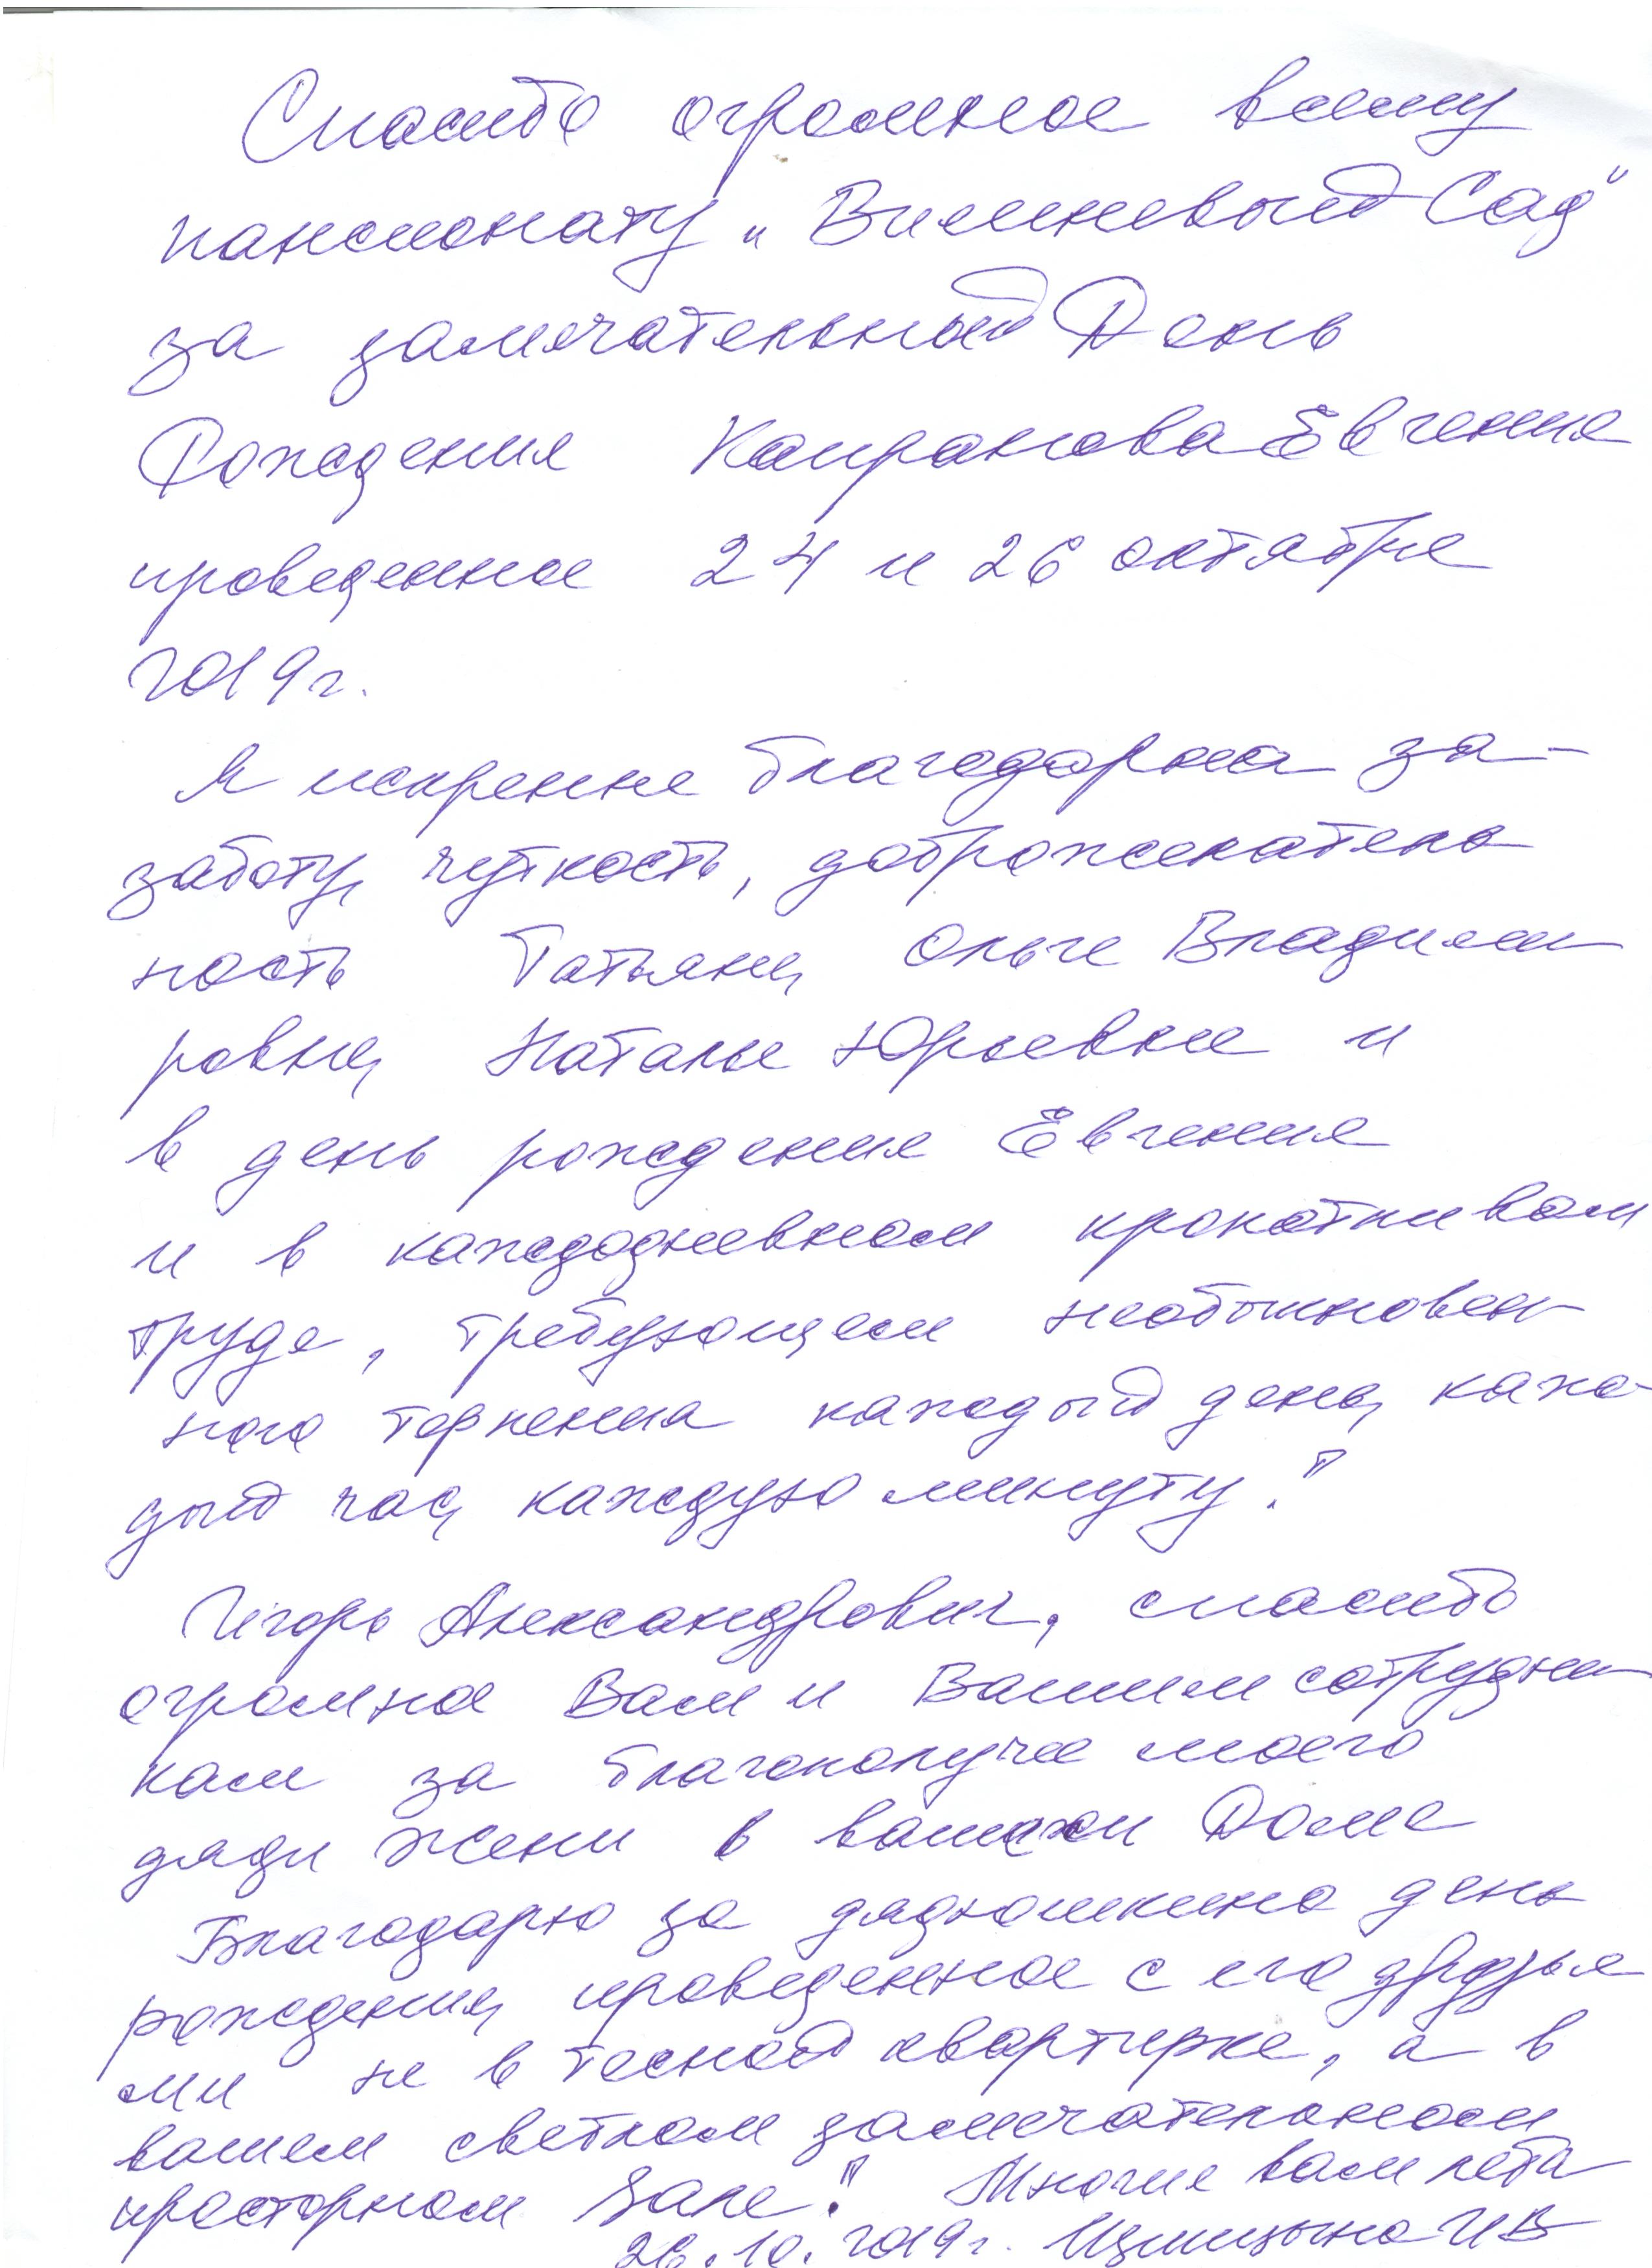 Спасибо огромное всему
пансионату „Вишневый Сад"
за замечательный День
Рождения Капранова Евгения
проведенное 24 и 26 октября
2019 г.
Я искренне благодарна за-
заботу, чуткость, доброжелатель
ность Татьяне, Ольге Владими
ровне, Наталье Юрьевне и
в день рождения Евгения
и в каждодневном кропотливом
труде, требующем необыкновен
ного терпения каждый день, каж-
дый час, каждую минуту!
Игорь Александрович, спасибо
огромное Вам и Вашим сотрудни
кам за благополучие моего
дяди Жени в вашем Доме
Благодарю за дядюшкино день
рождения, проведенное с его друзья
ми не в тесной квартирке, а в
вашем светлом замечательном
просторном Зале! Многие вам лета
26.10.2019 г. И В